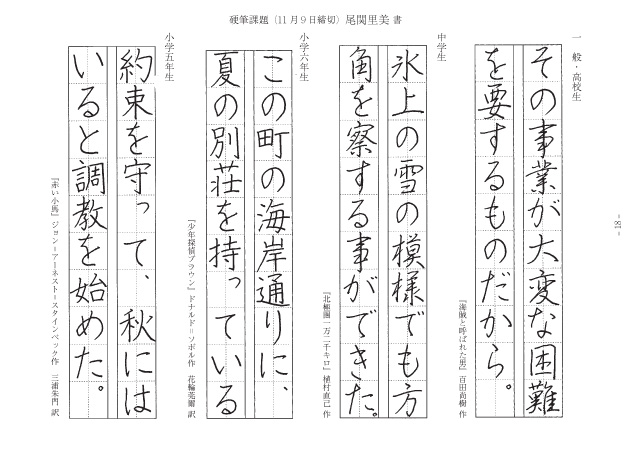 硬筆課題（11月9日締切）尾関里美 書
一般・高校生
その事業が大変な困難
を要するものだから。
『海賊と呼ばれた男』百田尚樹 作
中学生
氷上の雪の模様でも方
角を察する事ができた。
『北極圏一万二千キロ』植村直己 作
小学六年生
この町の海岸通りに、
夏の別荘を持っている
『少年探偵ブラウン』ドナルド＝ソボル作 花輪莞爾 訳
小学五年生
約束を守って、秋には
いると調教を始めた。
『赤い小馬』ジョン＝アーネスト＝スタインベック作 三浦朱門 訳
- 18 -